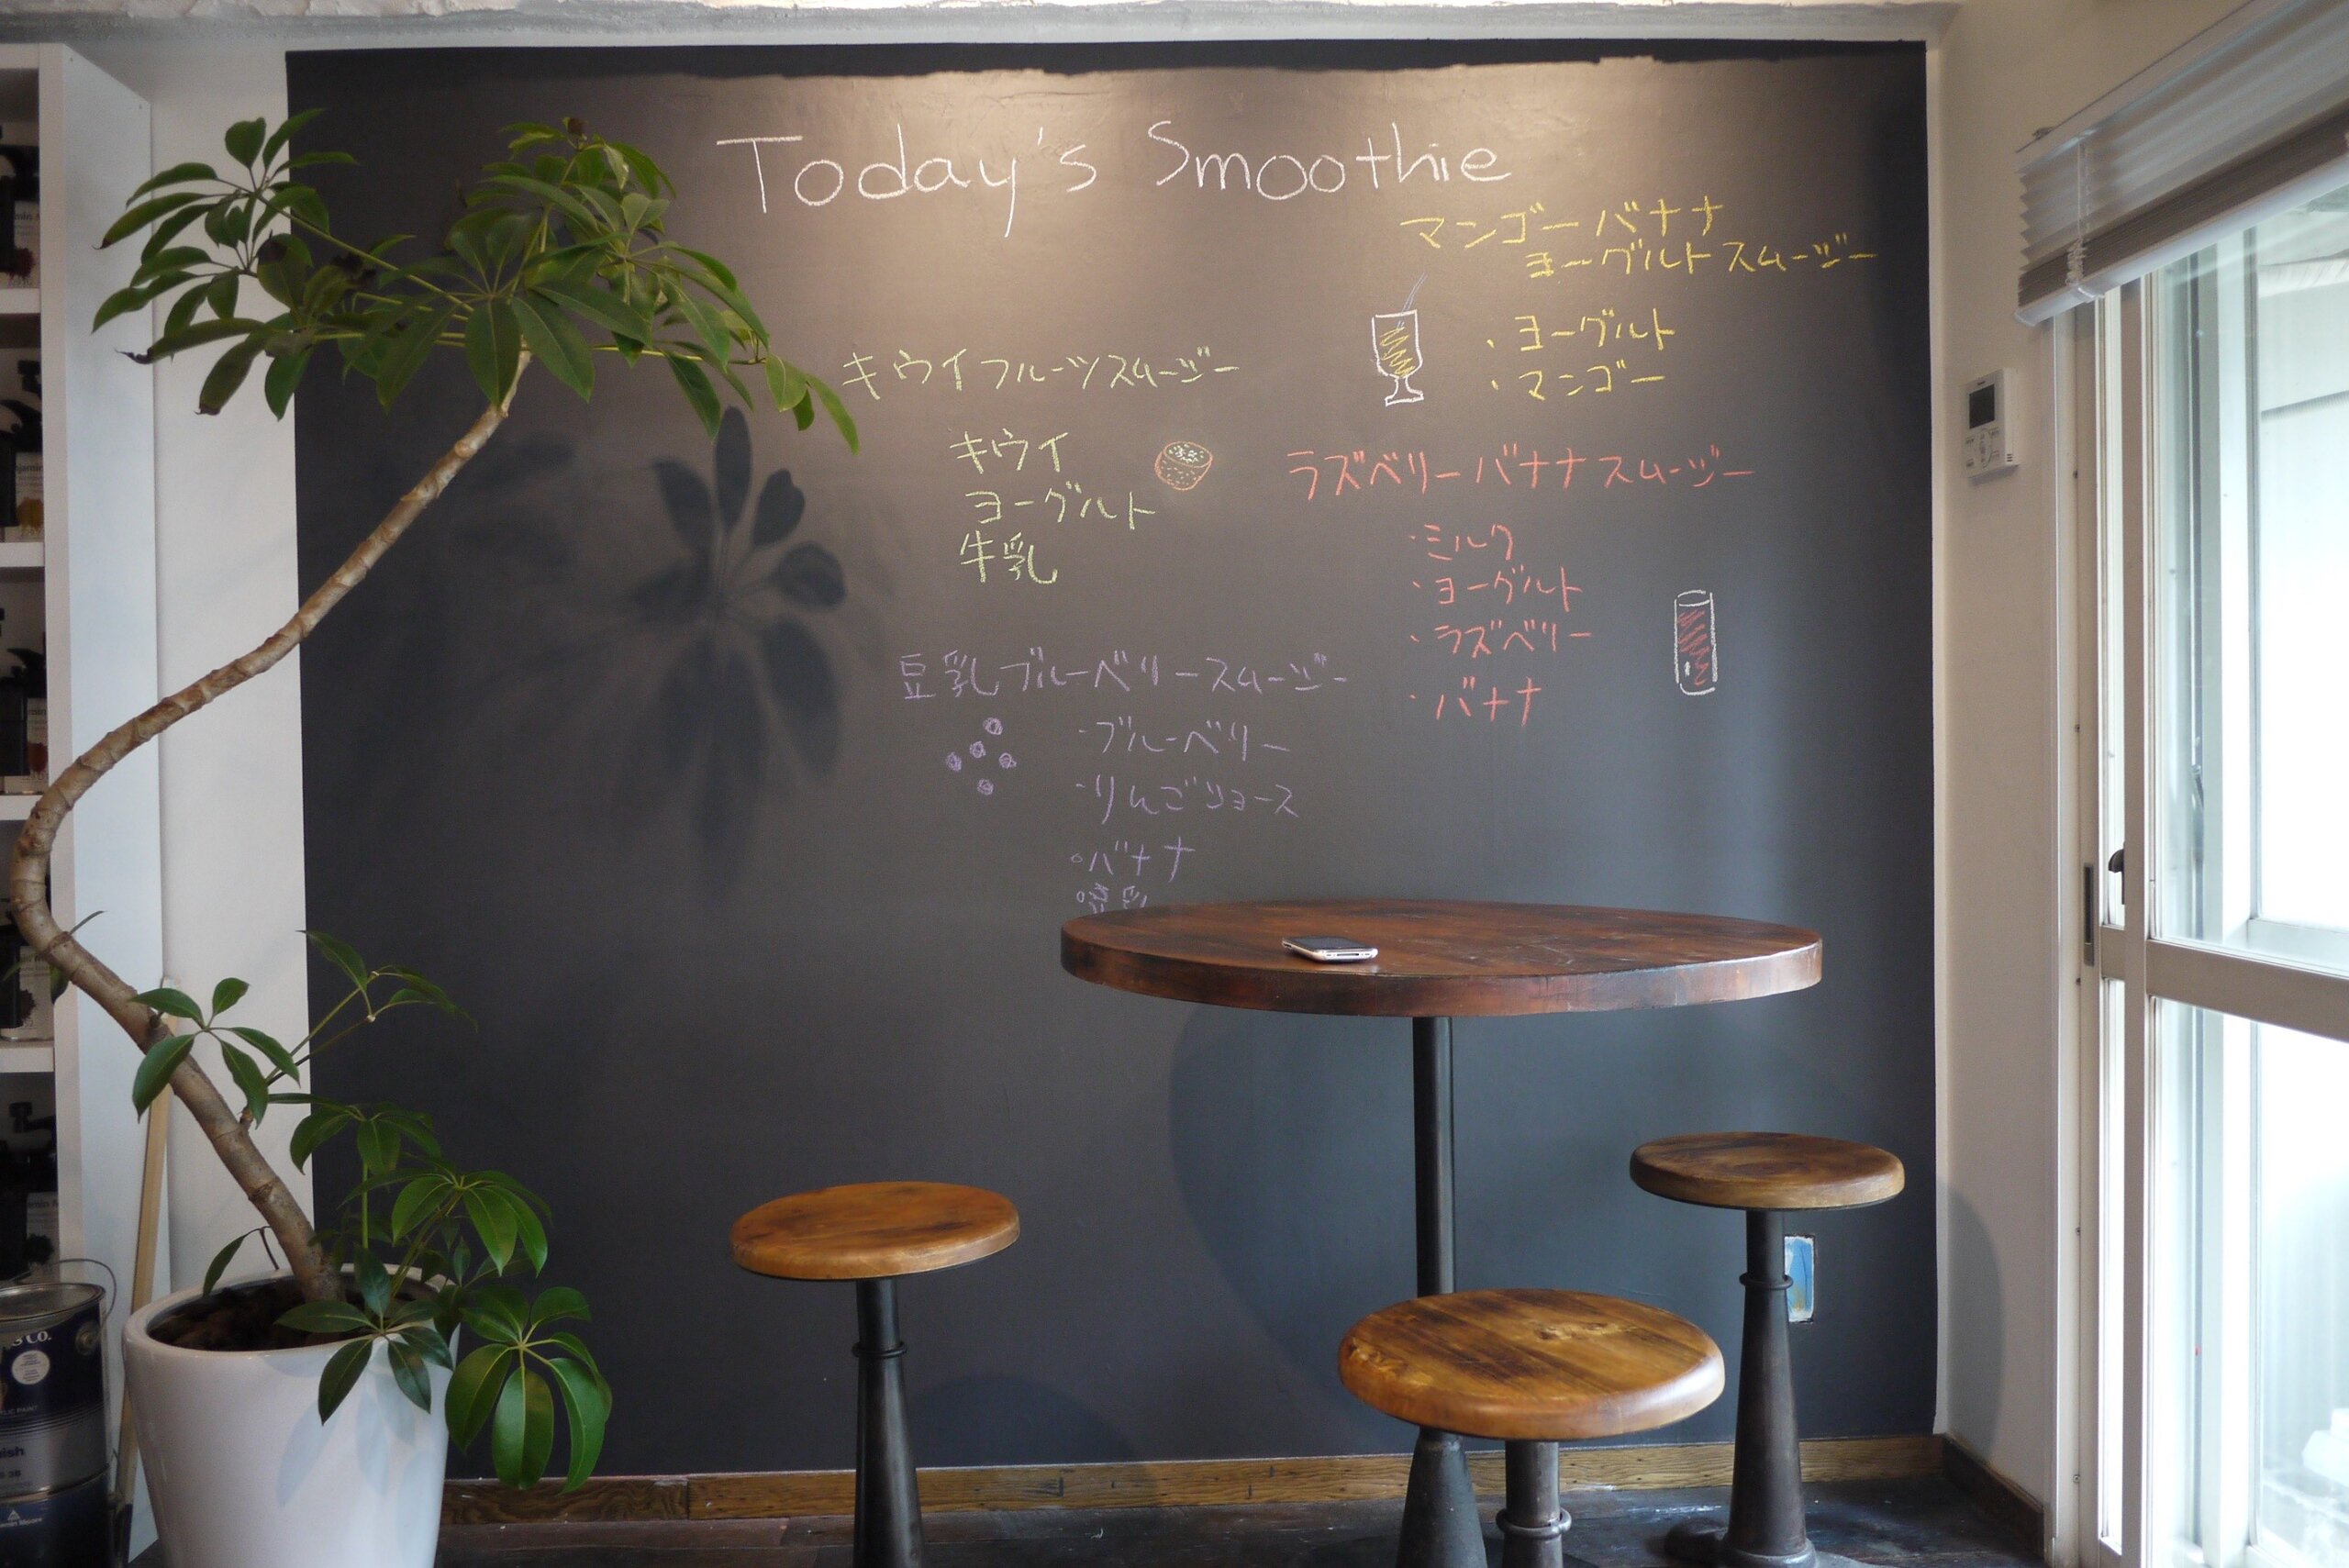 Today's Smoothie
マンゴーバナナ
ヨーグルトスムージー
・ヨーグルト
・マンゴー
キウイフルーツスムージー
キウイ
ヨーグルト
牛乳
ラズベリーバナナスムージー
・ミルク
・ヨーグルト
・ラズベリー
・バナナ
豆乳ブルーベリースムージー
・ブルーベリー
・りんごジュース
・バナナ